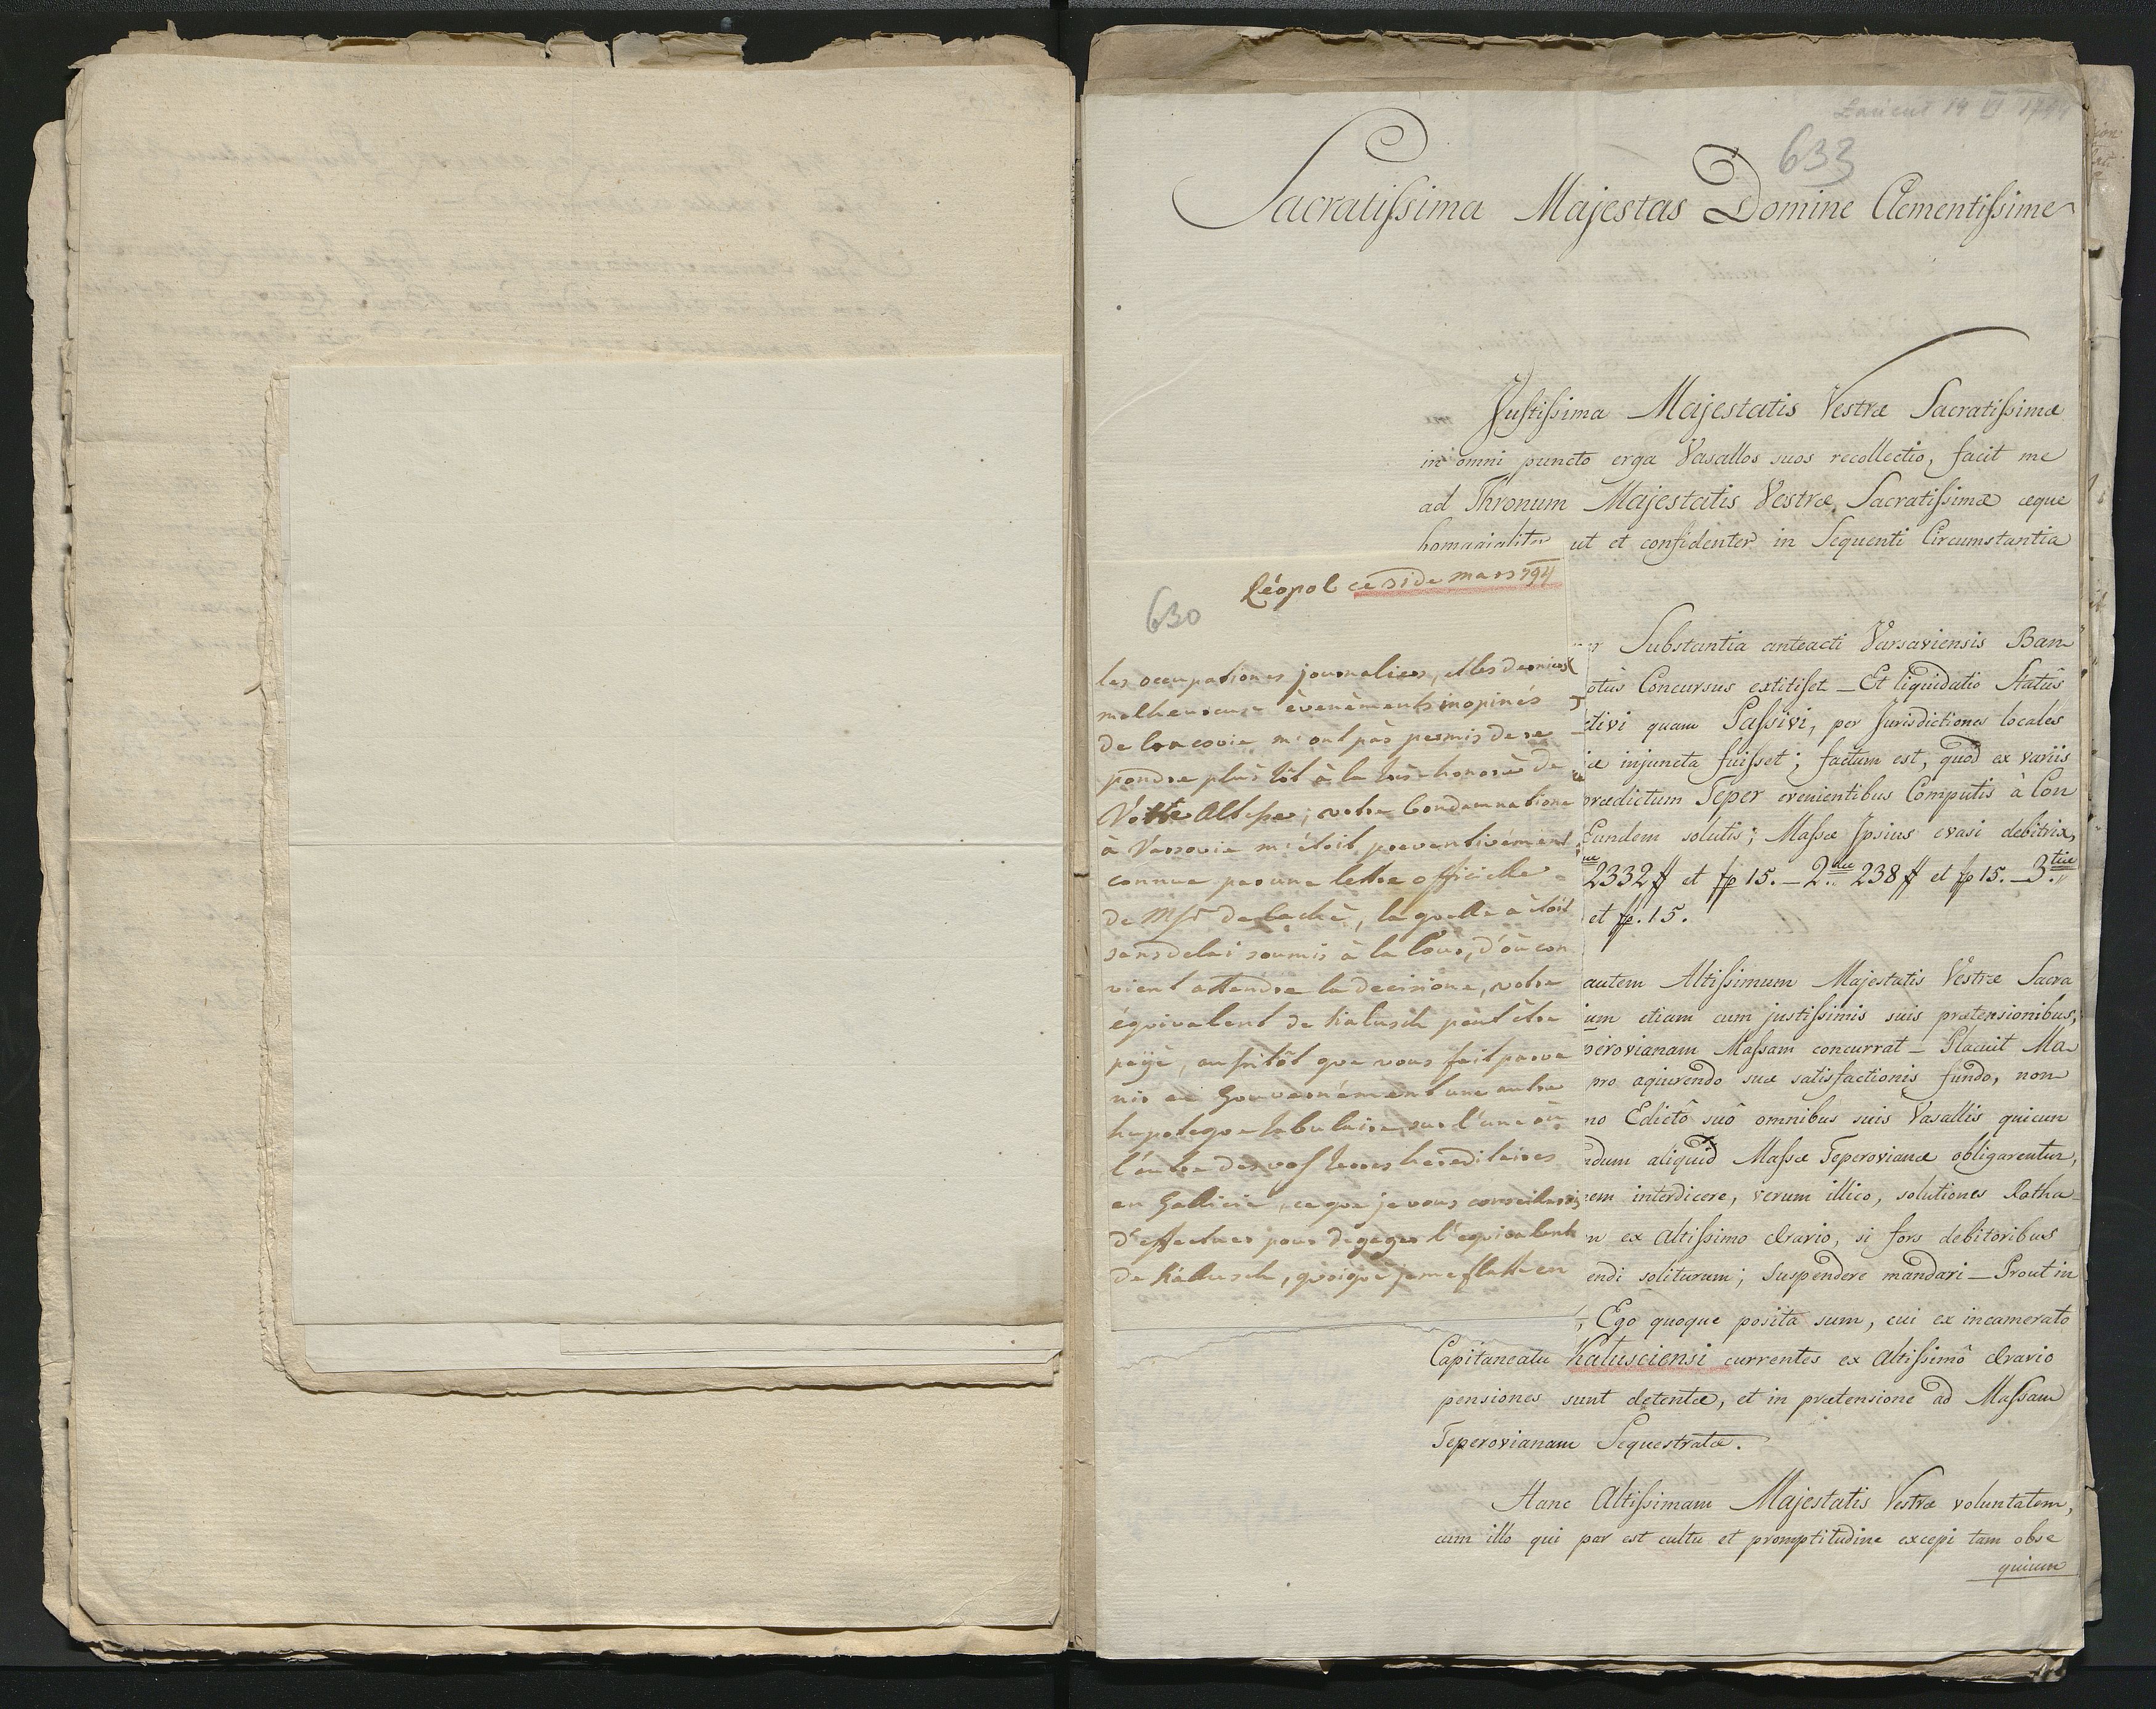 Łańcut 14 VI 1794
633
Sacratissima Majestas Domine Clementissime
Justissima Majestatis Vestræ Sacratissimæ
in omni puncto erga Vasallos suos recollectio, facit me
ad Thronum Majestatis Vestræ Sacratissimæ æque
homagialiter ut et confidenter in Sequenti Circumstantia
Substantia anteacti Varsaviensis Ban
otûs Concursus extitisset — Et liquidatio Statûs
ctivi quam Passivi, per Jurisdictiones locales
injuncta fuisset; factum est, quod ex variis
prædictum Teper evenientibus Computis à Con
Eundem solutis; Massæ Ipsius evasi debitrix,
2332 # et fp 15. — 2. 238 # et fp 15. — 3.tiæ
et fp. 15.
autem Altissimum Majestatis Vestræ Sacra
um etiam cum justissimis suis prætensionibus,
perovianam Massam concurrat — Placuit Ma
pro aquirendo suæ satisfactionis fundo, non
mo Edictô suô omnibus suis Vasallis quicun
ndum aliquid Massæ Teperovianæ obligarentur,
nem interdicere, verum illico, solutiones Ratha
n ex Altissimo Ærario, si fors debitoribus
endi soliturum; Suspendere mandari — Prout in
, Ego quoque posita sum, cui ex incamerato
Capitaneatu Kalusciensi currentes ex Altissimô Ærario
pensiones sunt detentæ, et in prætensione ad Massam
Teperovianam Sequestratæ.
Hanc Altissimam Majestatis Vestræ voluntatem,
cum illo qui par est cultu et promptitudine excepi tam obse
quium
630
Léopol ce 31 de mars 794
les occupationes journalieres, et les derniers
malheureuse évenéments inopinés
de Cracovie m'ont pàs permis de re
pondre plus tôt à la très-honorée de
Votre Altesse; votre Condamnatione
à Varsovie m'étoit preventivément
connue par une lettre officielle
de Msr de Caché, la quelle a étoit
sans delai soumis à la Cour, d'où con
vient attendre la decisione, votre
équivalent de Kalusch peut être
payé, aussitôt que vous fait parve
nir au Gouvernément une autre
hypoteque tabulaire, sur l'une où
l'autre des vos terres hereditaires
en Gallicie, ce que je vous conseillerois
d'effectuer pour degager l'equivalent
de Kalusch, quoique je me flatte en